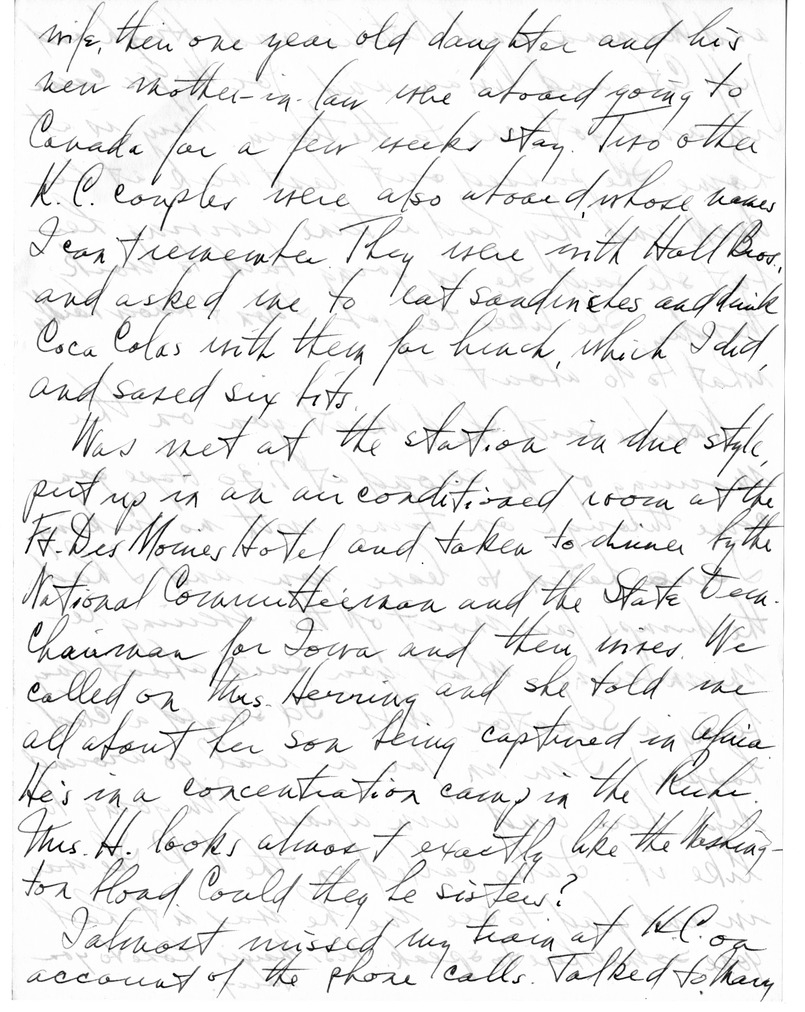 wife, their one year old daughter and his
new mother-in-law were aboard going to
Canada for a few weeks stay. Two other
K.C. couples were also aboard, whose names
I can't remember. They were with Hall Bros.,
and asked me to eat sandwiches and drink
Coca Colas with them for lunch, which I did,
and saved six bits.
Was met at the station in due style,
put up in an air conditioned room at the
Ft. Des Moines Hotel and taken to dinner by the
National Committeeman and the State Dem.
Chairman for Iowa and their wives. We
called on Mrs. Herring and she told me
all about her son being captured in Africa.
He's in a concentration camp in the Reich.
Mrs. H. looks almost exactly like the Washing-
ton blond. Could they be sisters?
I almost missed my train at K.C. on
account of the phone calls. Talked to Mary